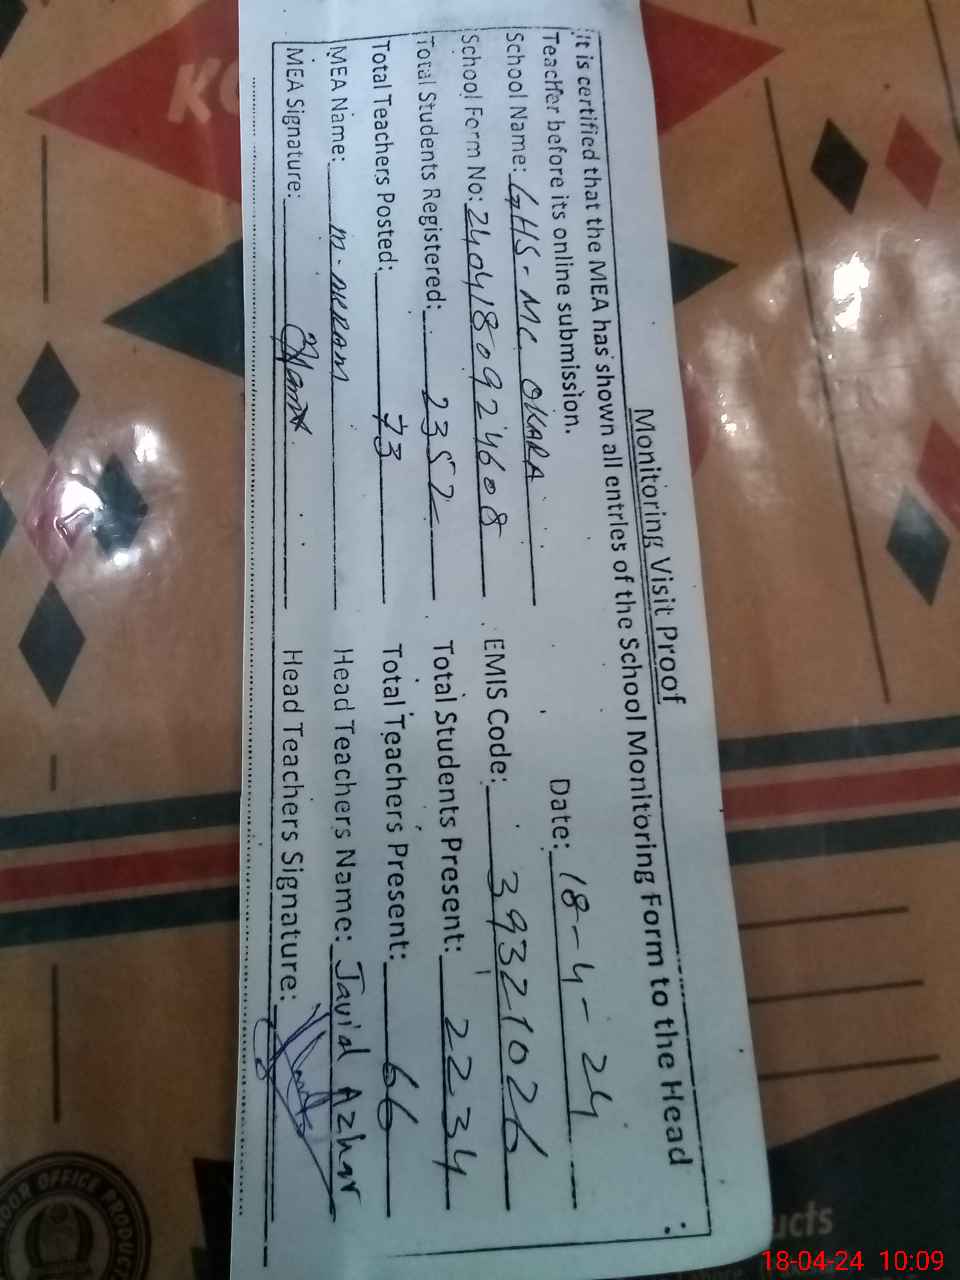 Monitoring Visit Proof
it is certified that the MEA has shown all entries of the School Monitoring Form to the Head
Teacher before its online submission.
Date: 18-4-24
School Name: GHS-MC OKARA
School Form No: 2404180924608 EMIS Code: 39321026
Total Students Registered: 2352 Total Students Present: 2234
Total Teachers Posted: 73 Total Teachers Present: 66
MEA Name: M. AKRAM Head Teachers Name: Javid Azhar
MEA Signature: Head Teachers Signature:
OFFICE PRODUC
ucts
18-04-24 10:09